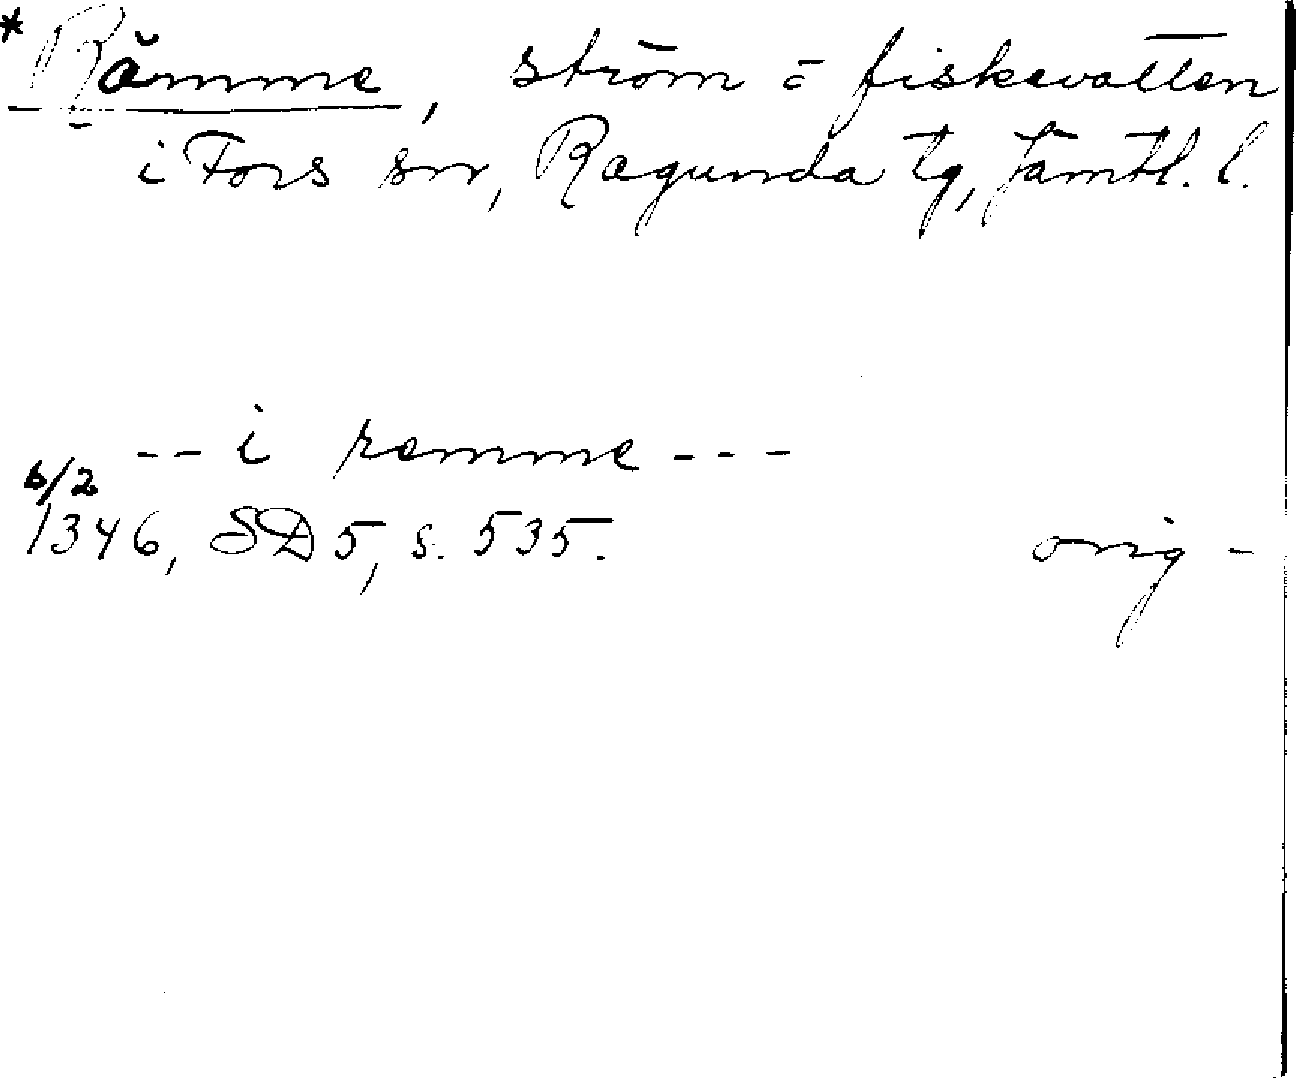 *Rămme, ström = fiskevatten
i Fors sn, Ragunda tg, Jämtl. l.
-- i remme ---
6/2
1346, SD 5, s. 535. orig -